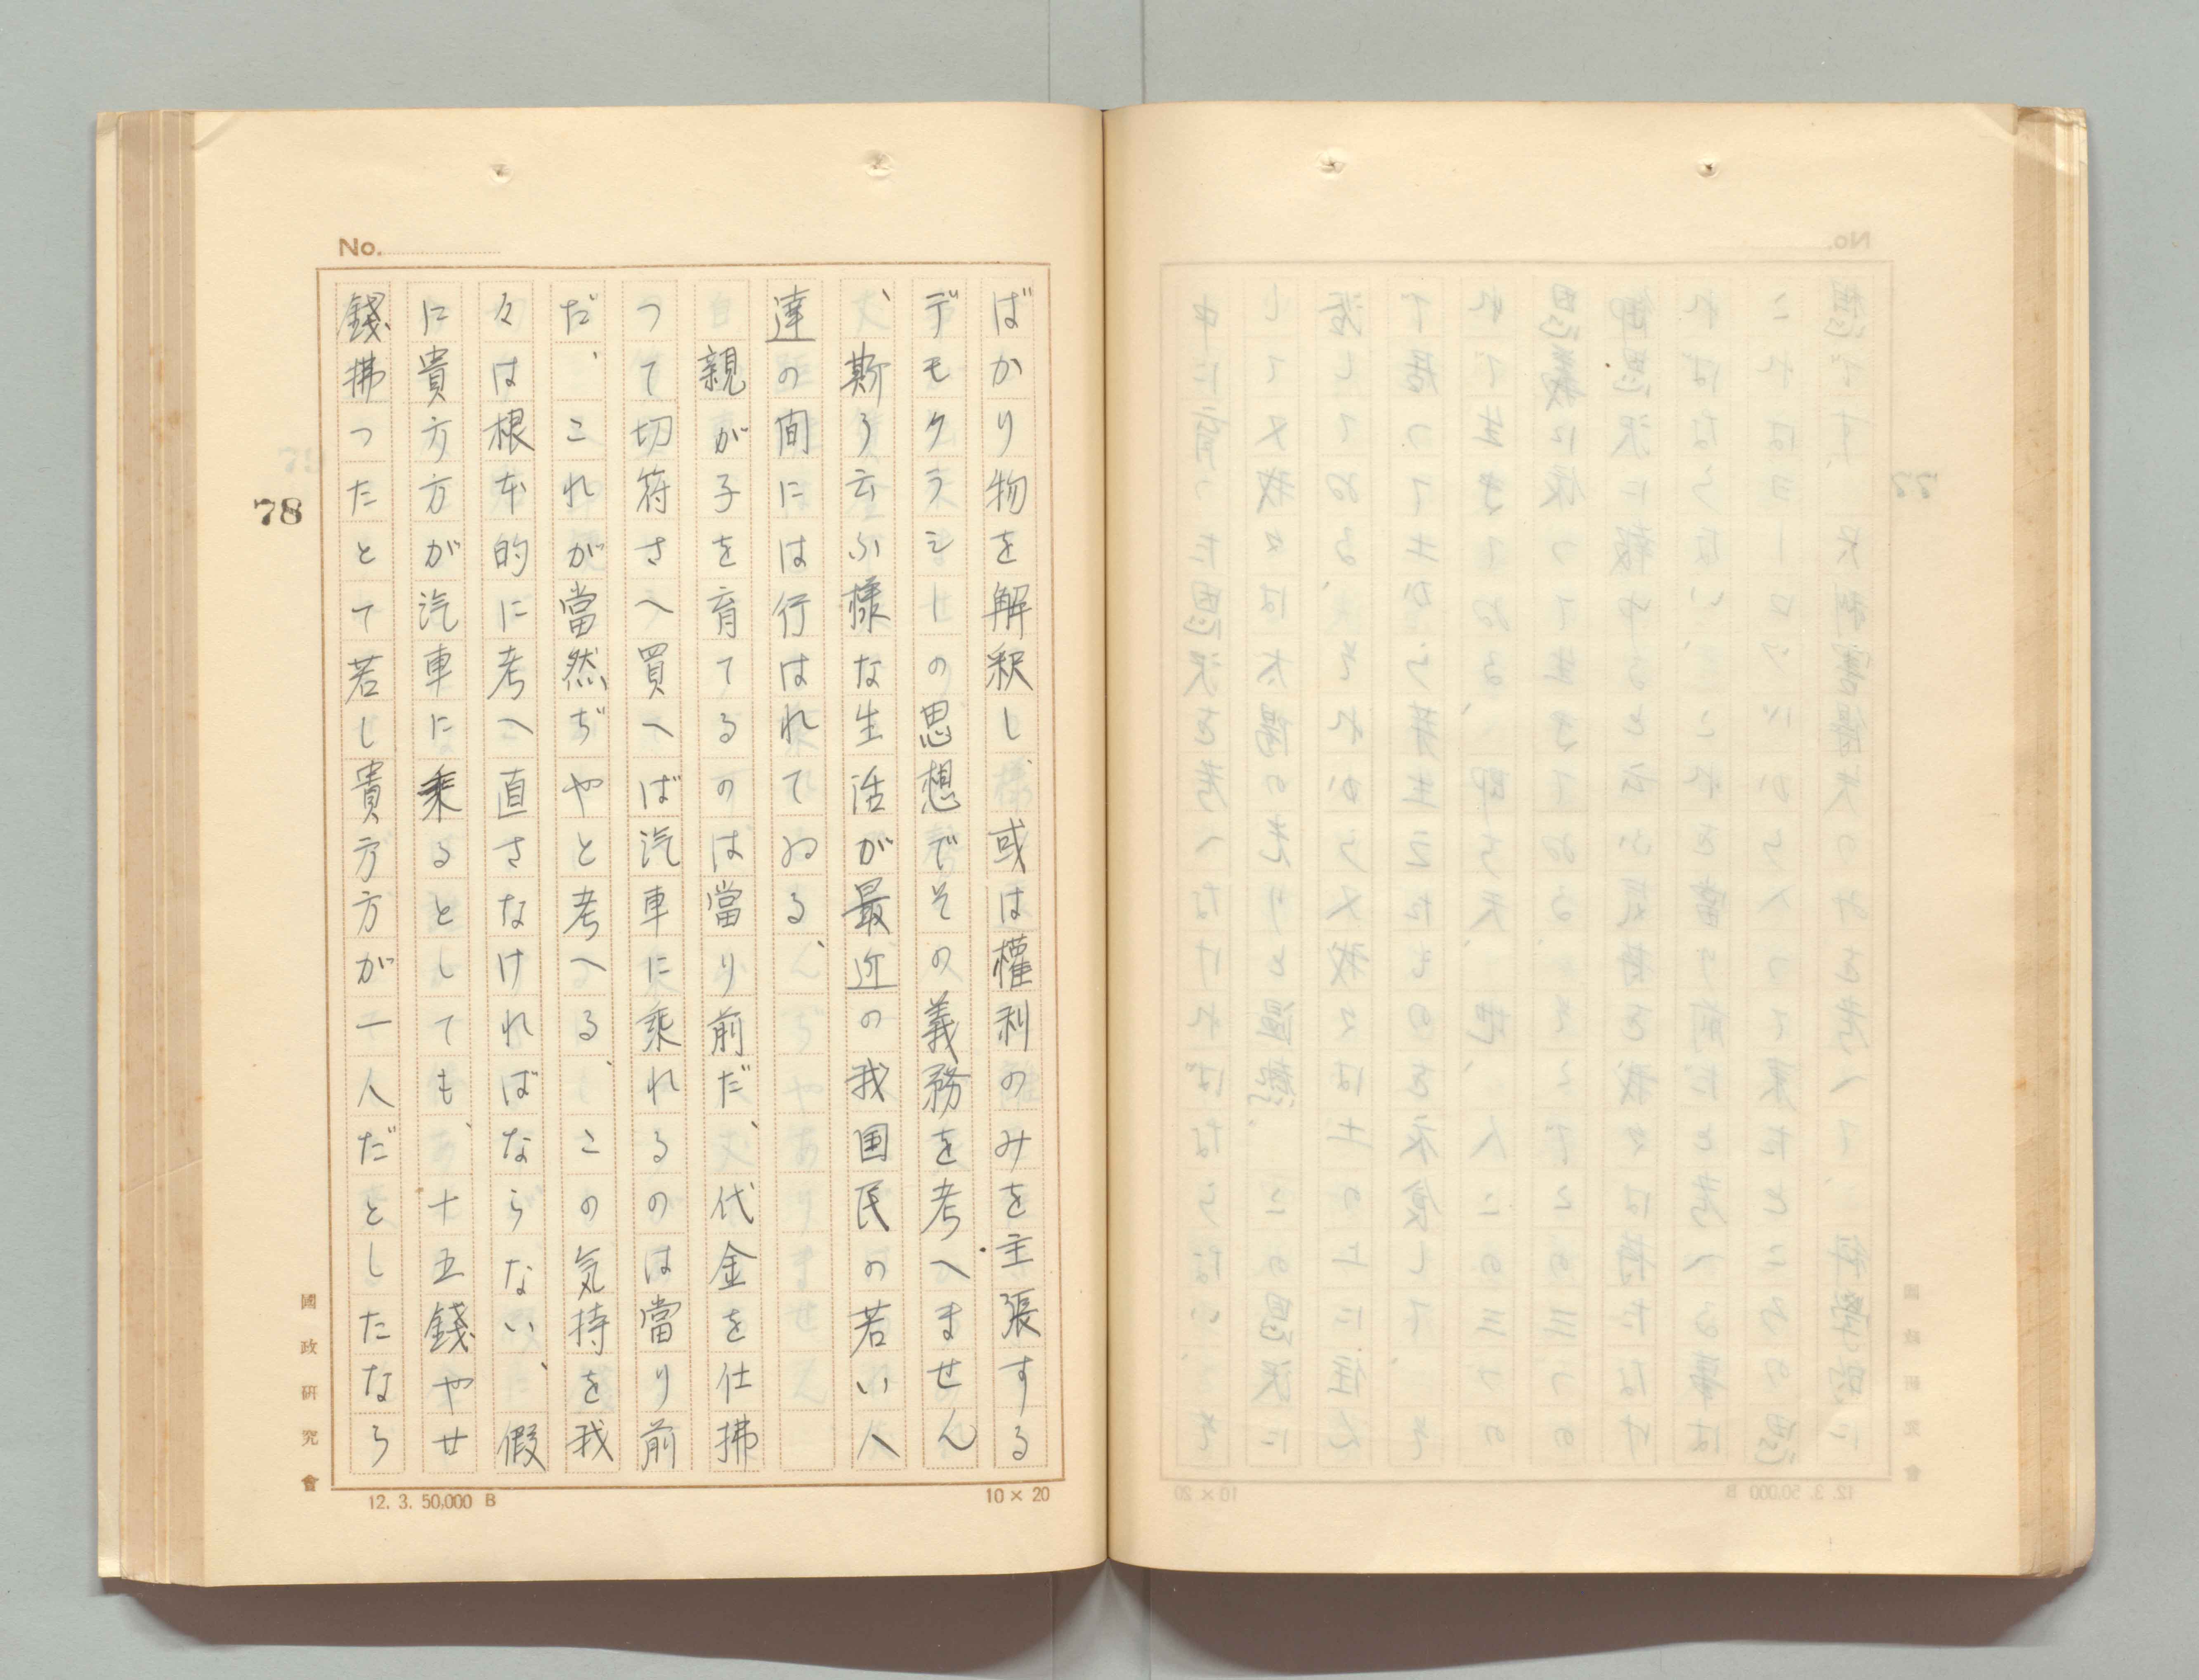 No.
ばかり物を解釈し、或は權利のみを主張する
デモクラシーの思想でその義務を考へません
、斯う云ふ様な生活が最近の我国民の若い人
達の間には行はれてゐる、
親が子を育てるのは當り前だ、代金を仕拂
つて切符さへ買へば汽車に乘れるのは當り前
だ、これが當然ぢやと考へる、この気持を我
々は根本的に考へ直さなければならない、假
に貴方方が汽車に乘るとしても、十五錢やせ
錢拂つたとて若し貴方方が一人だとしたなら
78
國政研究會
10×20
12. 3. 50,000 B